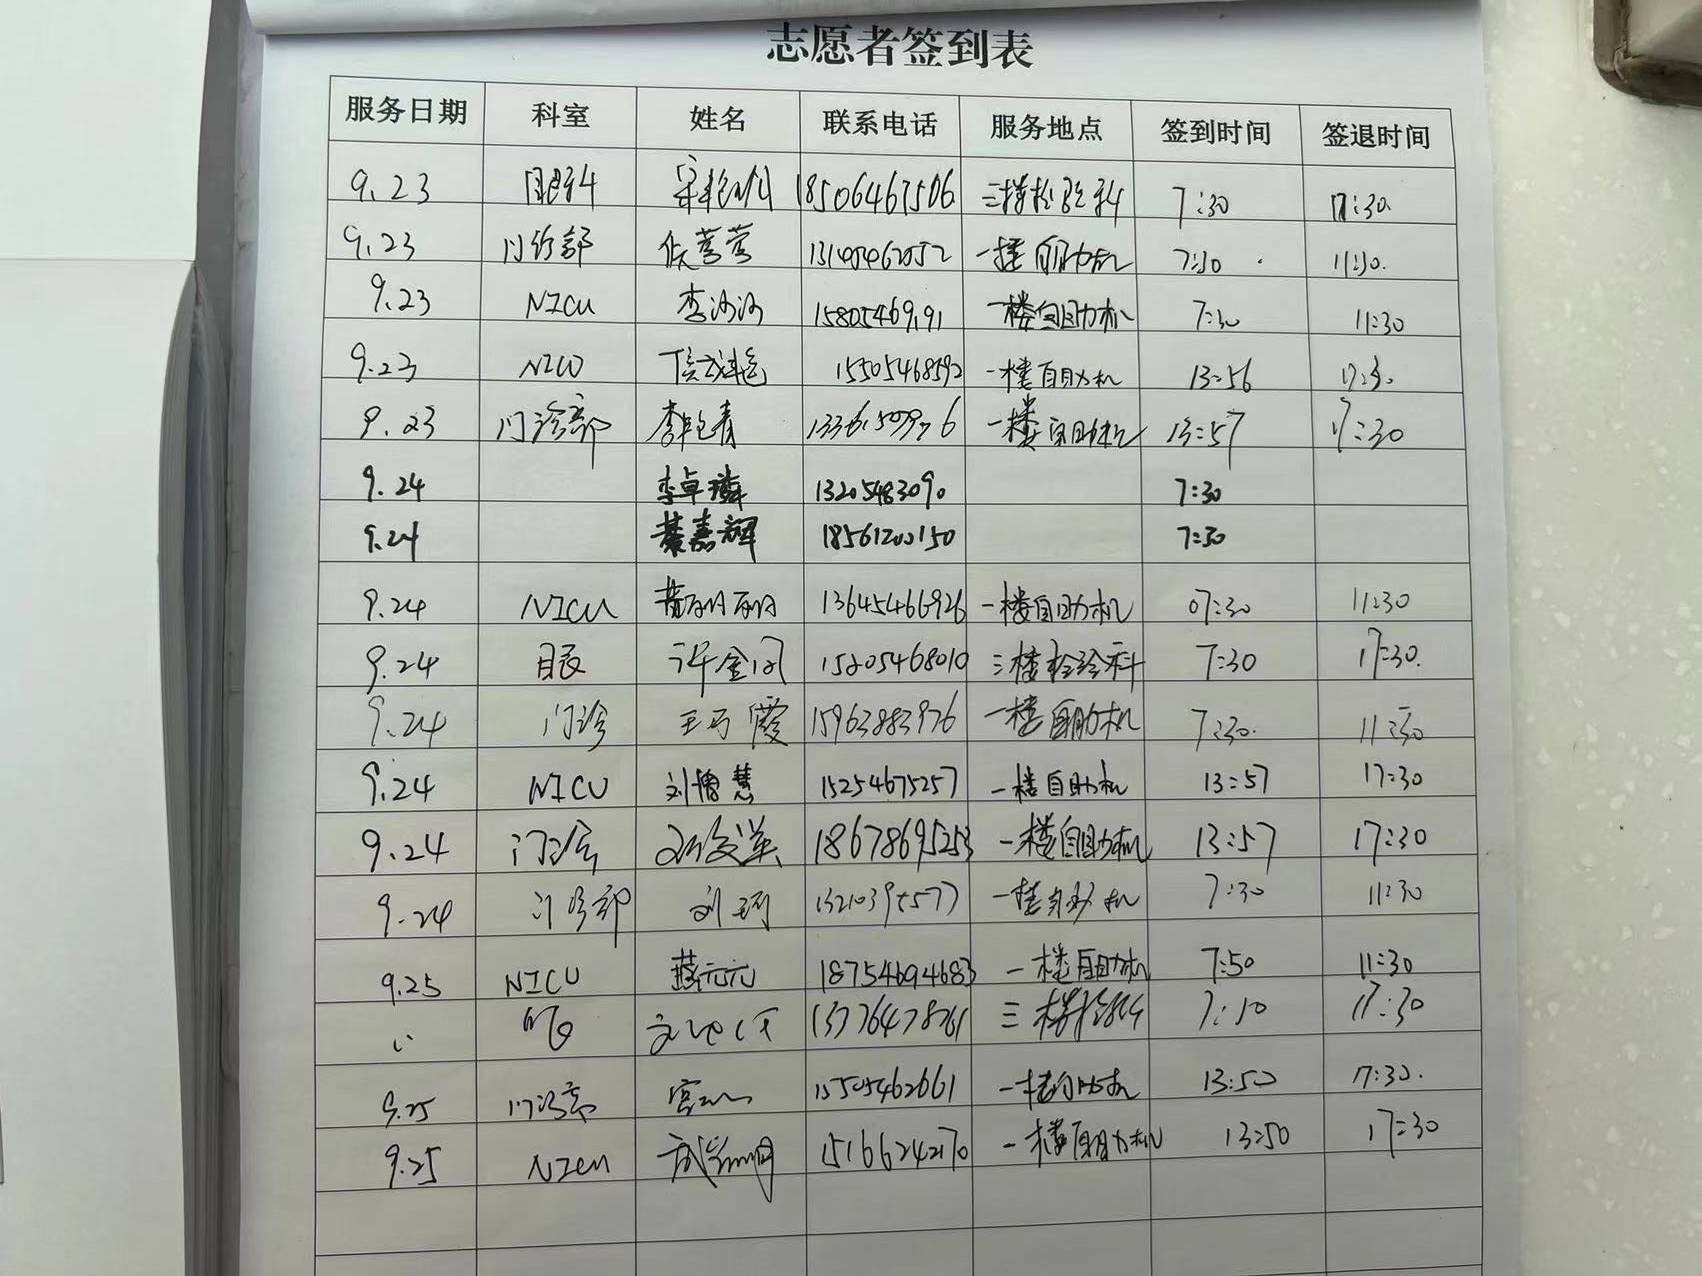 志愿者签到表
服务日期 科室 姓名 联系电话 服务地点 签到时间 签退时间
9.23 眼科 18506467506 三楼检验科 7:30 17:30
9.23 门诊部 侯营营 一楼自助机 7:30 11:30.
9.23 NICU 李沙沙 15805469191 一楼自助机 7:30 11:30
9.23 NICU 15505468592 一楼自助机 13:56 17:30.
9.23 门诊部 李艳青 一楼自助机 13:57 17:30
9.24 李卓璘 13205483090 7:30
9.24 綦嘉辉 18561200150 7:30
9.24 NICU 黄丽丽 13645466926 一楼自助机 07:30 11:30
9.24 眼 许金凤 15205468010 三楼检验科 7:30 17:30.
9.24 门诊 王巧霞 15963883976 一楼自助机 7:30. 11:30
9.24 NICU 刘增慧 15254675257 一楼自助机 13:57 17:30
9.24 门诊 18678695253 一楼自助机 13:57 17:30
9.24 门诊部 刘珂 13210395577 一楼自助机 7:30 11:30
9.25 NICU 燕元元 18754694683 一楼自助机 7:50 11:30
13776478761 三楼检验科 17:30
9.25 门诊部 15505462661 一楼自助机 13:50 17:30.
9.25 NICU 15166242170 一楼自助机 13:50 17:30